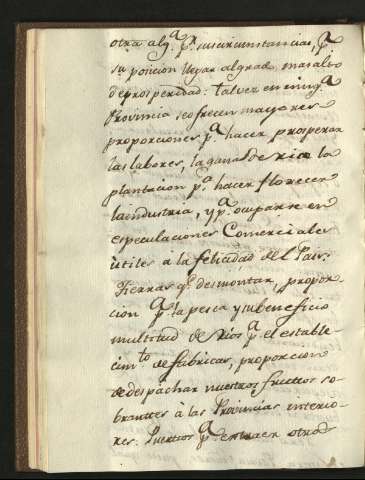 otra alg.ª p.r sus circumstancias, p.ª
su posicion llegar al grado mas alto
de prosperidad: talvez en ning.ª
Provincia se ofrecen mayores
proporciones p.ª hacer prosperar
las labores, la ganaderia la
plantacion p.ª hacer florecer
la industria, y p.ª ocuparse en
especulaciones Comerciales
ùtiles a la felicidad del Pais:
Tierras q.e desmontar, propor-
cion p.ª la pesca y su beneficio
multitud de rios p.ª el estable-
cim.to de fabricas, proporcion
de despachar nuestros fruttos so-
brantes à las Provincias interio-
res: Puertos p.ª extraer otros